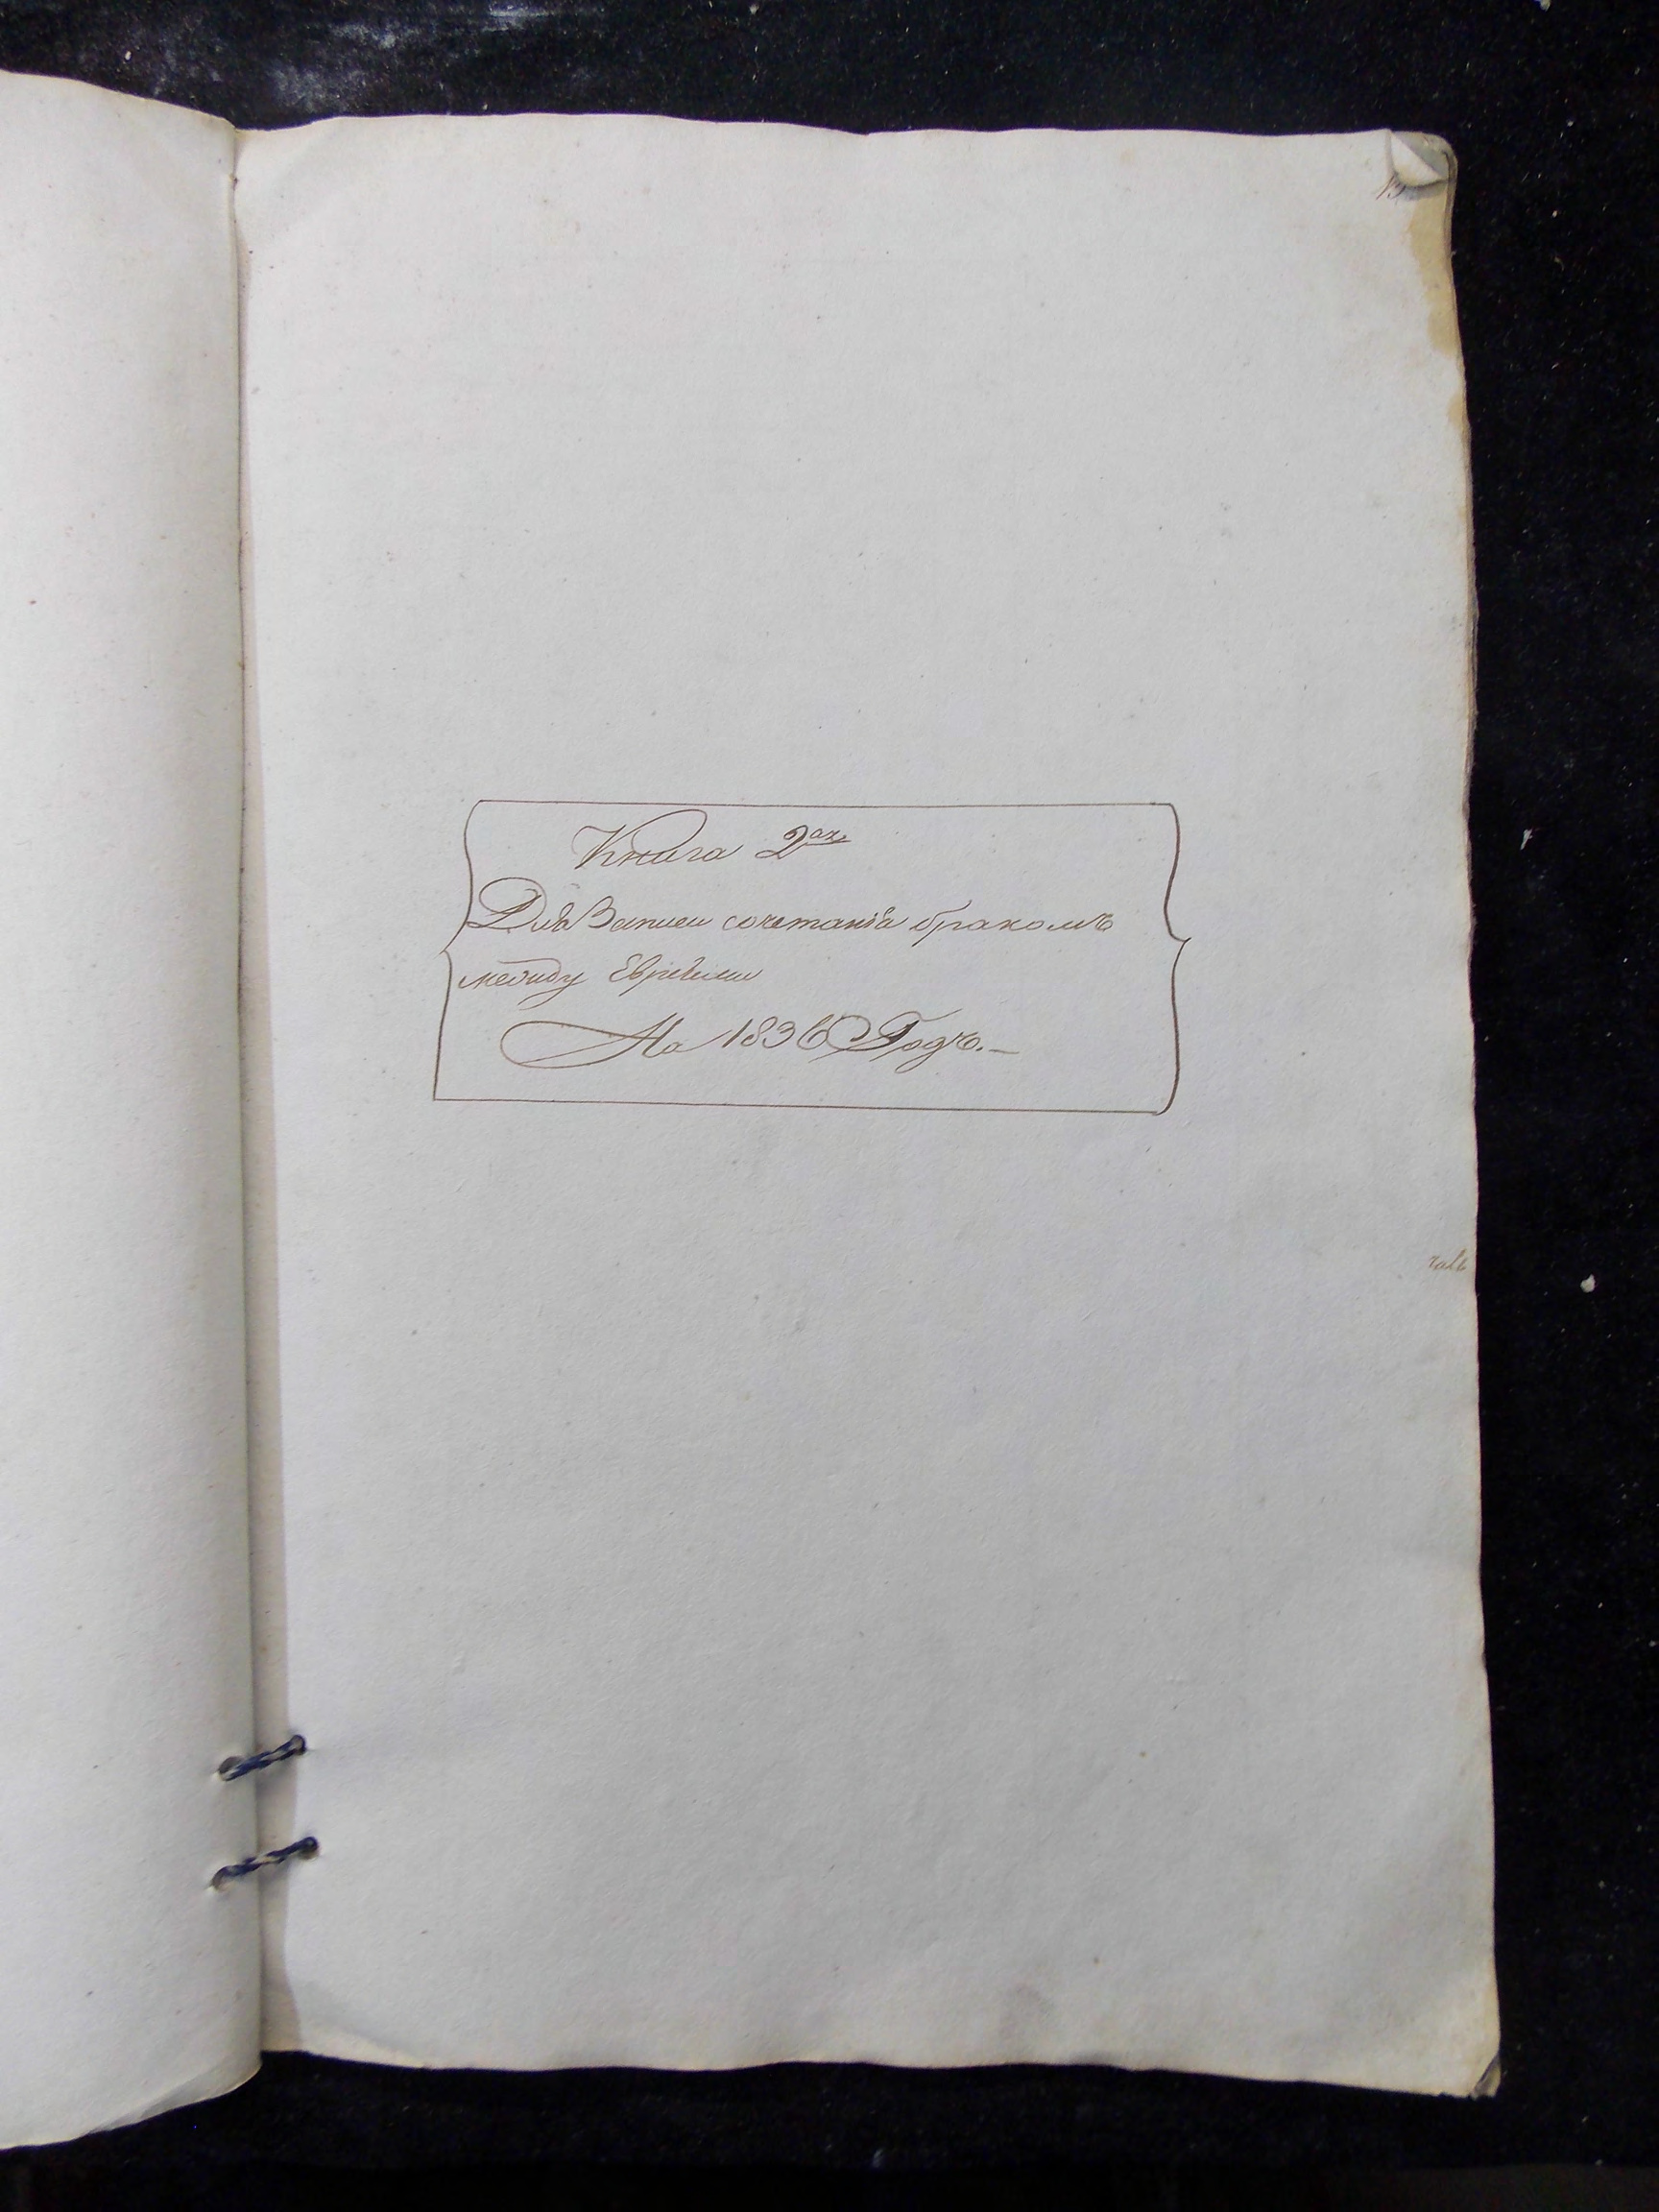 Книга 2ая
Для Записи сочетанія бракомъ
между Евреями
На 1836 Годъ.—